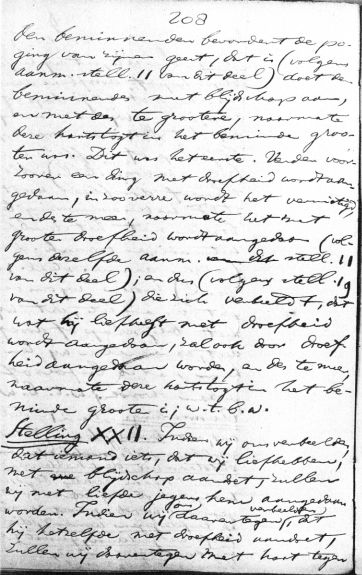 208
den beminnenden bevordert de po-
ging van zijnen geest, dat is (volgens
aanm. stell. 11 van dit deel) doet den
beminnenden met blijdschap aan,
en met des te grootere, naarmate
deze hartstogt in het beminde groo-
ter was. Dit was het eerste. Verder voor
zoover een ding met droefheid wordt aan-
gedaan, in zooverre wordt het vernietigd
en des te meer, naarmate het met
groote droefheid wordt aangedaan (vol-
gens dezelfde aanm. stell. 11
van dit deel); en dus (volgens stell. 19
van dit deel) die zich verbeeldt, dat
wat hij liefheeft met droefheid
wordt aangedaan, zal ook door droef-
heid aangedaan worden, en des te meer,
naarmate deze hartstogt in het be-
minde grooter is; w. t. b. w.
Stelling XXII. Indien wij ons verbeelden,
dat iemand iets, dat wij liefhebben,
met blijdschap aandoet, zullen
wij met liefde jegens hem aangedaan
worden. Indien wij ons daarentegen verbeelden, dat
hij hetzelfde met droefheid aandoet,
zullen wij daarentegen met haat tegen